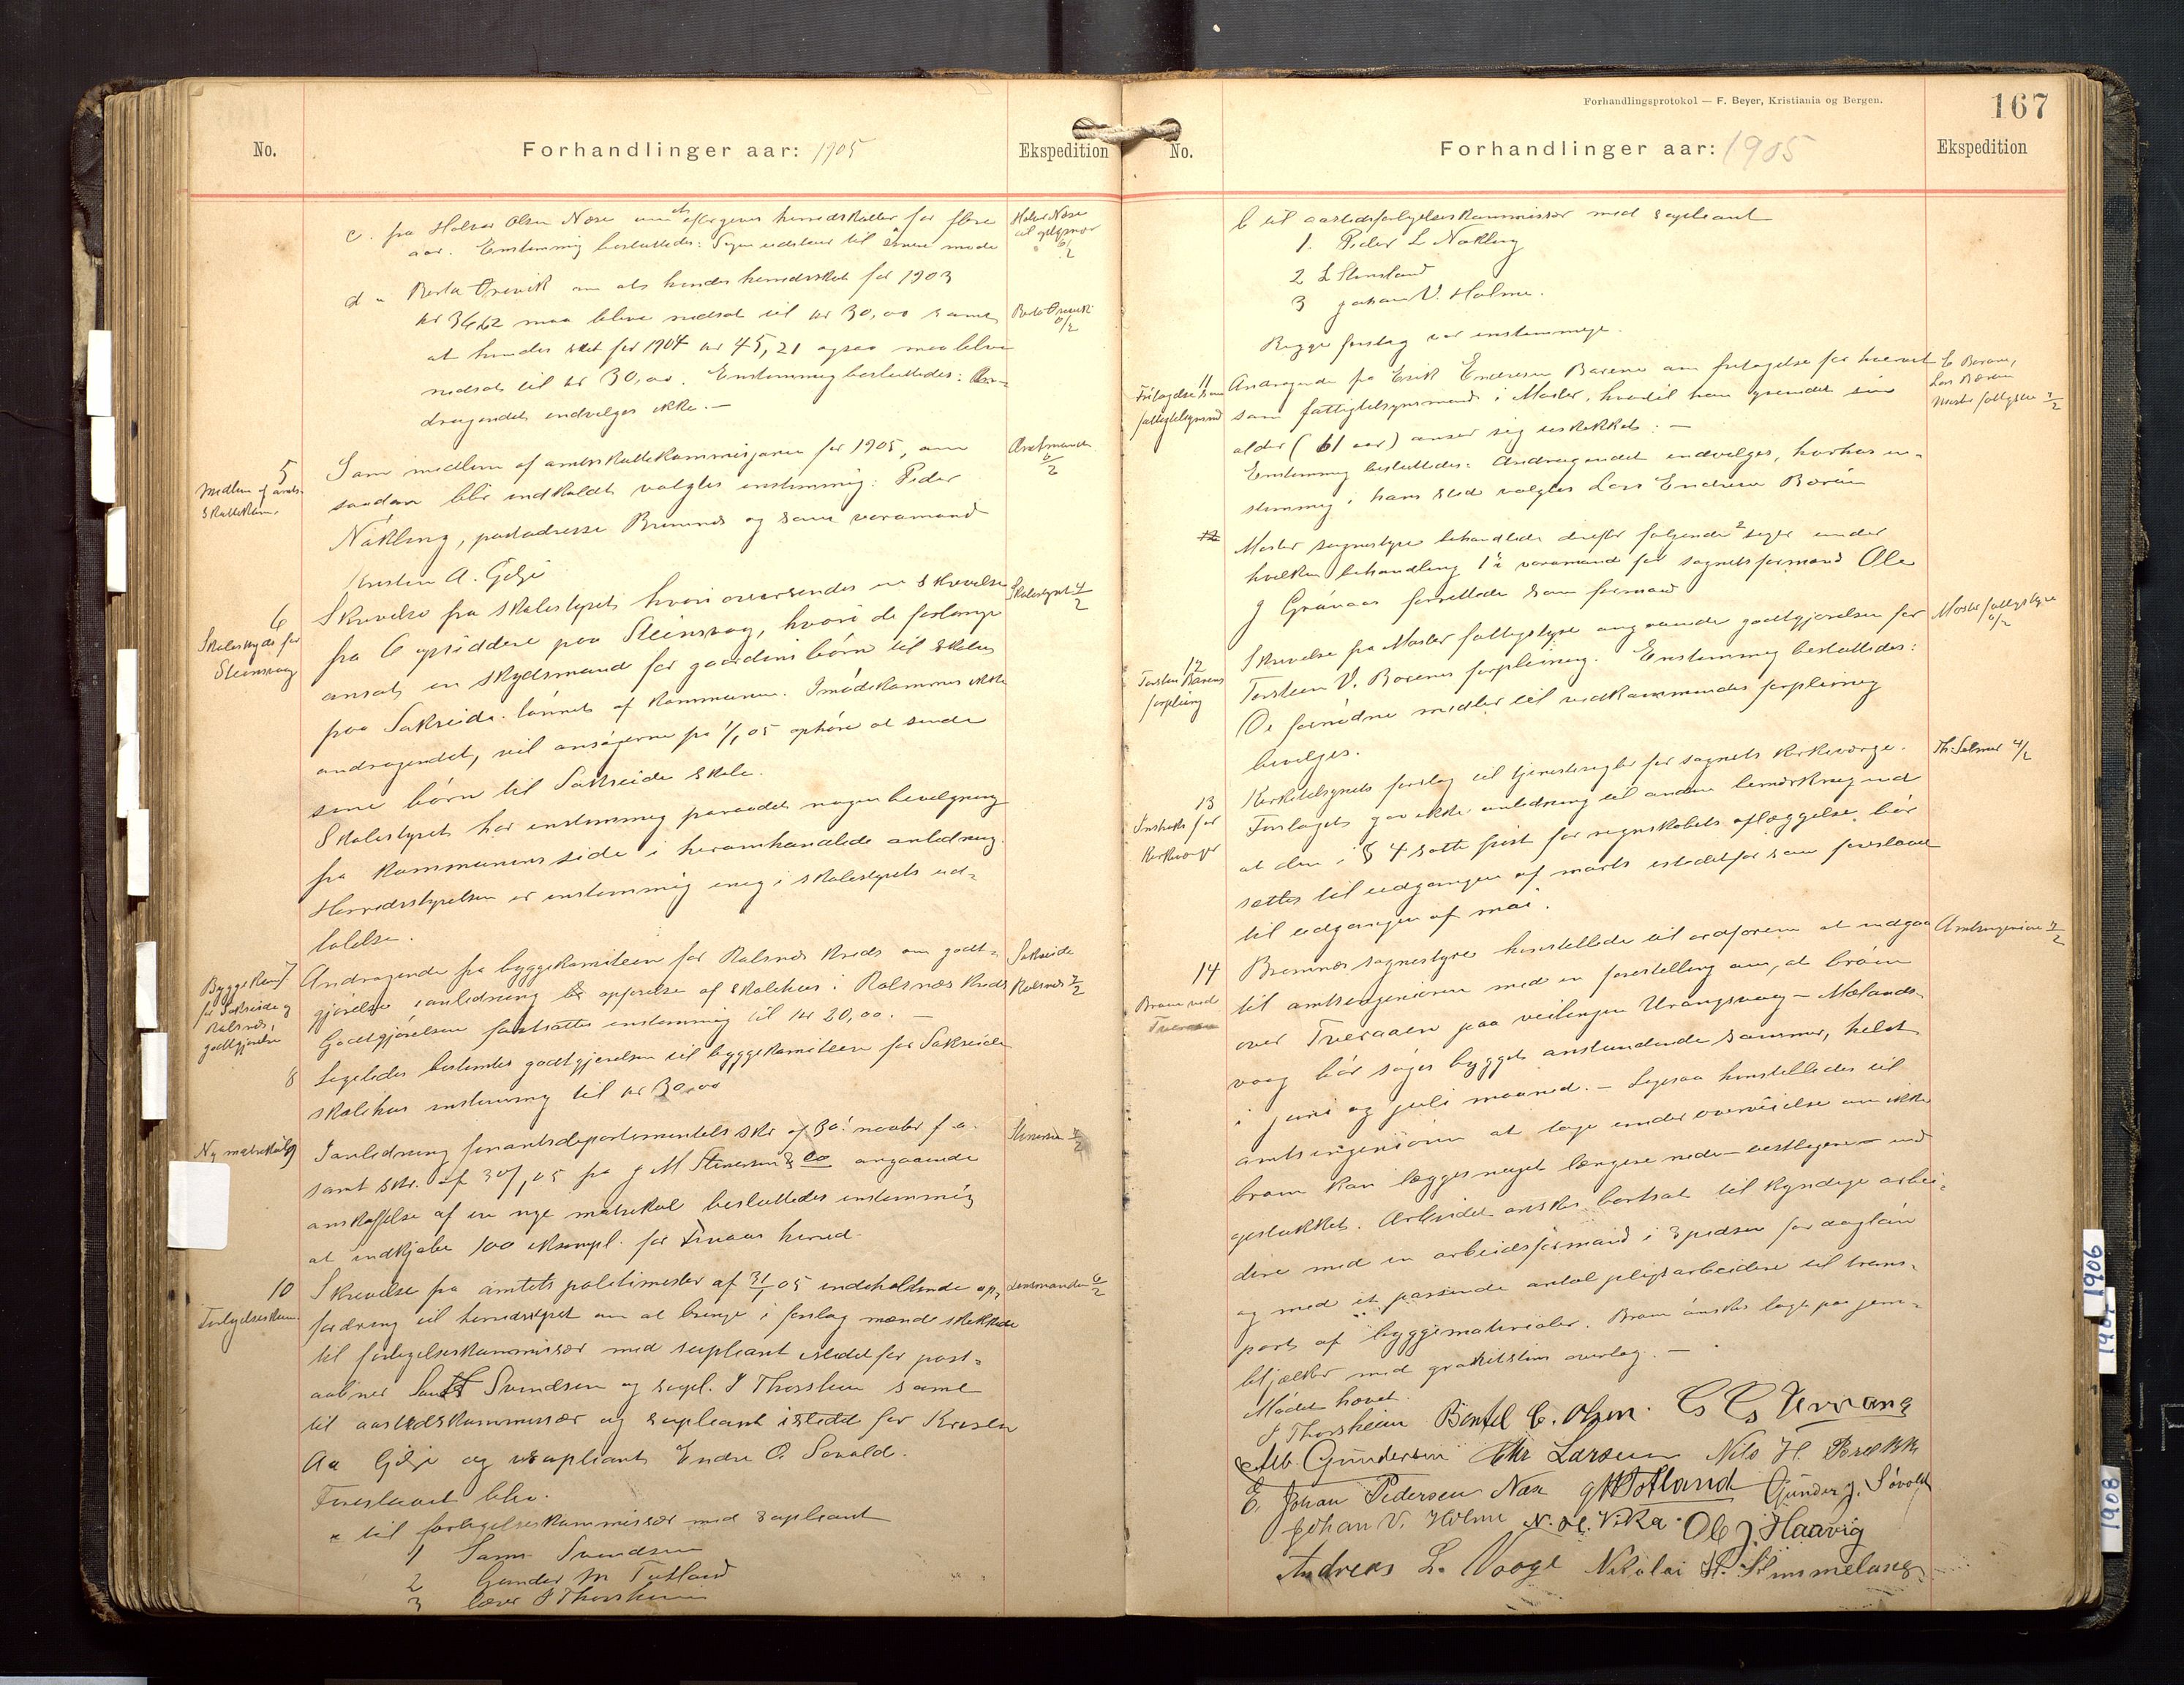 No.
Forhandlinger aar: 1905
Ekspedition
c. fra Halvor Olsen Næse om eftergivne herredsskatter for flere
aar. Enstemmig besluttedes: Sagen udstaar til senere møde
d " BertaØrevik om at hendes herredsskat for 1903
kr 34,62 maa blive nedsat til kr 30,00 samt
at hendes skat for 1904 kr 45,21 ogsaa maa blive
nedsat til kr 30,00. Enstemmig besluttedes: An-
dragendet indvilges ikke. –
5
Medlem af amts-
skattekom.
Som medlem af amtsskattekommisjonen for 1905, om
saadan blir indkaldt valgtes enstemmig: Peder
Nökling, postadresse Bremnes og som varamand
Kristen A. Gilje
Amtmanden
6/2
6
Skoleskyds for
Steinsvaag
Skrivelse fra skolestyret hvori oversendes en skrivelse
fra 6 opsiddere paa Steinsvaag, hvori de forlange
ansat en skydsmand for gaardens børn til skolen
paa Sakseide lønnet af kommunen. Imødekommes ikke
andragendet, vil ansøgerne fra 1/1 05 ophøre at sende
sine børn til Sakseide skole.
Skolestyret har enstemmig fraraadet nogen bevilgning
fra kommunens side i heromhandlede anledning.
Herredsstyrelsen er enstemmig enig i skolestyrets ud-
talelse.
Skolestyret 4/2
7
Byggekom.
for Sakseide og
Rolsnes,
godtgjørelse
Andragende fra byggekomiteen for Rolsnes kreds om godt-
gjørelse i anledning opførelse af skolehus i Rolsnæs kreds
Godtgjørelsen fastsattes enstemmig til kr 20,00. –
Sakseide
Rolsnes 7/2
8
Ligeledes bestemtes godtgjørelsen til byggekomiteen for Sakseide
skolehus enstemmig til kr 30,00
Ny matrikul 9
I anledning finantsdepartementets skr af 30' novbr f. a.
samt skr. af 30/1 05 fra J M Stenersen & Co angaaende
anskaffelse af en nye matrikul besluttedes enstemmig
at indkjøbe 100 eksempl. for Finaas herred.
Stenersen 7/2
10
Forligelseskom.
Skrivelse fra amtets politimester af 31/1 05 indeholdende op-
fordring til herredsstyret om at bringe i forslag mænd skikkede
til forligelseskommissær med supleant istedetfor post-
aabner Svendsen og supl. J Thorsheim samt
til aastedskommissær og supleant istedet for Kristen
Aa Gilje og supleant Endre O. Sovold.
Foreslaaet blev:
a til forligelseskommissær med supleant
1 Sam. Svendsen
2 Gunder M Totland
3 lærer J Thorsheim
Lensmanden 6/2
Forhandlingsprotokol — F. Beyer, Kristiania og Bergen.
167
No.
Forhandlinger aar: 1905
Ekspedition
b til aastedsforligelseskommissær med supleant
1. Peder L Nökling
2 L Stensland
3 Johan V. Holme.
Begge forslag var enstemmige.
11
Fritagelse som
fattigtilsynsmd
Andragende fra Erik Endresen Bærøen om fritagelse for hvervet
som fattigtilsynsmand i Moster, hvortil han grundet sin
alder (61 aar) anser sig uskikket. –
Enstemmig besluttedes: Andragendet indvilges, hvorhos en-
stemmig i hans sted valgtes Lars Endresen Bærøen
E Bærøen,
Lars Bærøen
Moster fattigstyre 7/2
12
Moster sognestyre behandlede derefter følgende 2 sager under
hvilken behandling 1ste varamand for sognets formand Ole
J Grønaas forrettede som formand
12
Torsten Bærøens
forpleining
Skrivelse fra Moster fattigstyre angaaende godtgjørelsen for
Torstein V. Bærøens forpleining. Enstemmig besluttedes:
De fornødne midler til vedkommendes forpleining
bevilges.
Moster fattigstyre
6/2
13
Instruks for
kirkeverger
Kirketilsynets forslag til tjenesteregler for sognets kirkeverge.
Forslaget gav ikke anledning til anden bemerkning end
at den i § 4 satte frist for regnskabets aflæggelse bør
sættes til udgangen af marts istedetfor som foreslaaet
til udgangen af mai.
Th. Salmer 4/2
14
Broen ved
Tveraaen
Bremnes sognestyre henstillede til ordføreren at indgaa
til amtsingeniøren med en forestilling om, at broen
over Tveraaen paa veilinjen Urangsvaag – Mælands-
vaag bør søges bygget anstundende sommer, helst
i juni og juli maaned. – Ligesaa henstilledes til
amtsingeniøren at tage under overveielse om ikke
broen kan lægges noget længere nede – vestligere – end
opstukket. Arbeidet ønskes bortsat til kyndige arbei-
dere med en arbeidsformand i spidsen for dagløn
og med et passende antal pligtarbeidere til trans-
port af byggematerialer. Broen ønskes lagt paa jern-
bjælker med granitsten overlag. –
Amtsingeniøren 7/2
Mødet hævet.
J Thorsheim Bentel C. Olsen. G G Urrang
Alb. Gundersen Chr Larsen Nils H. Brekk
E. Johan Pedersen Næs G M Totland Gunder J. Søvold
Johan V. Holme N. O. Vika. Ole J. Haavig
Andreas L. Vaage Nikolai H. Stimmelaug
1906
1907
1908